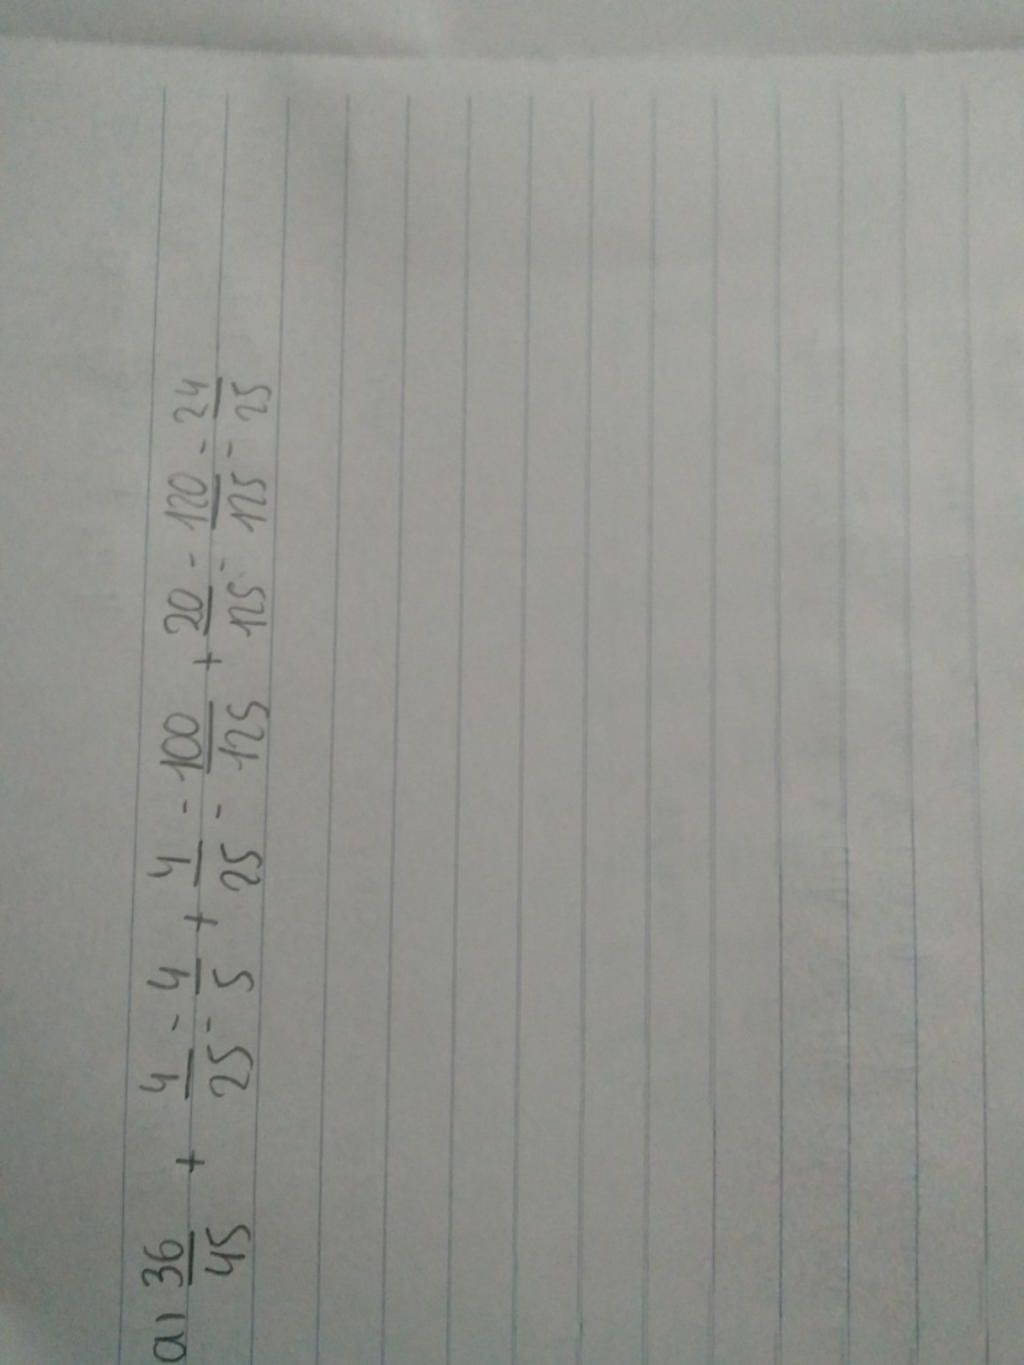 a) 36/45 + 4/25 = 4/5 + 4/25 = 100/125 + 20/125 = 120/125 = 24/25